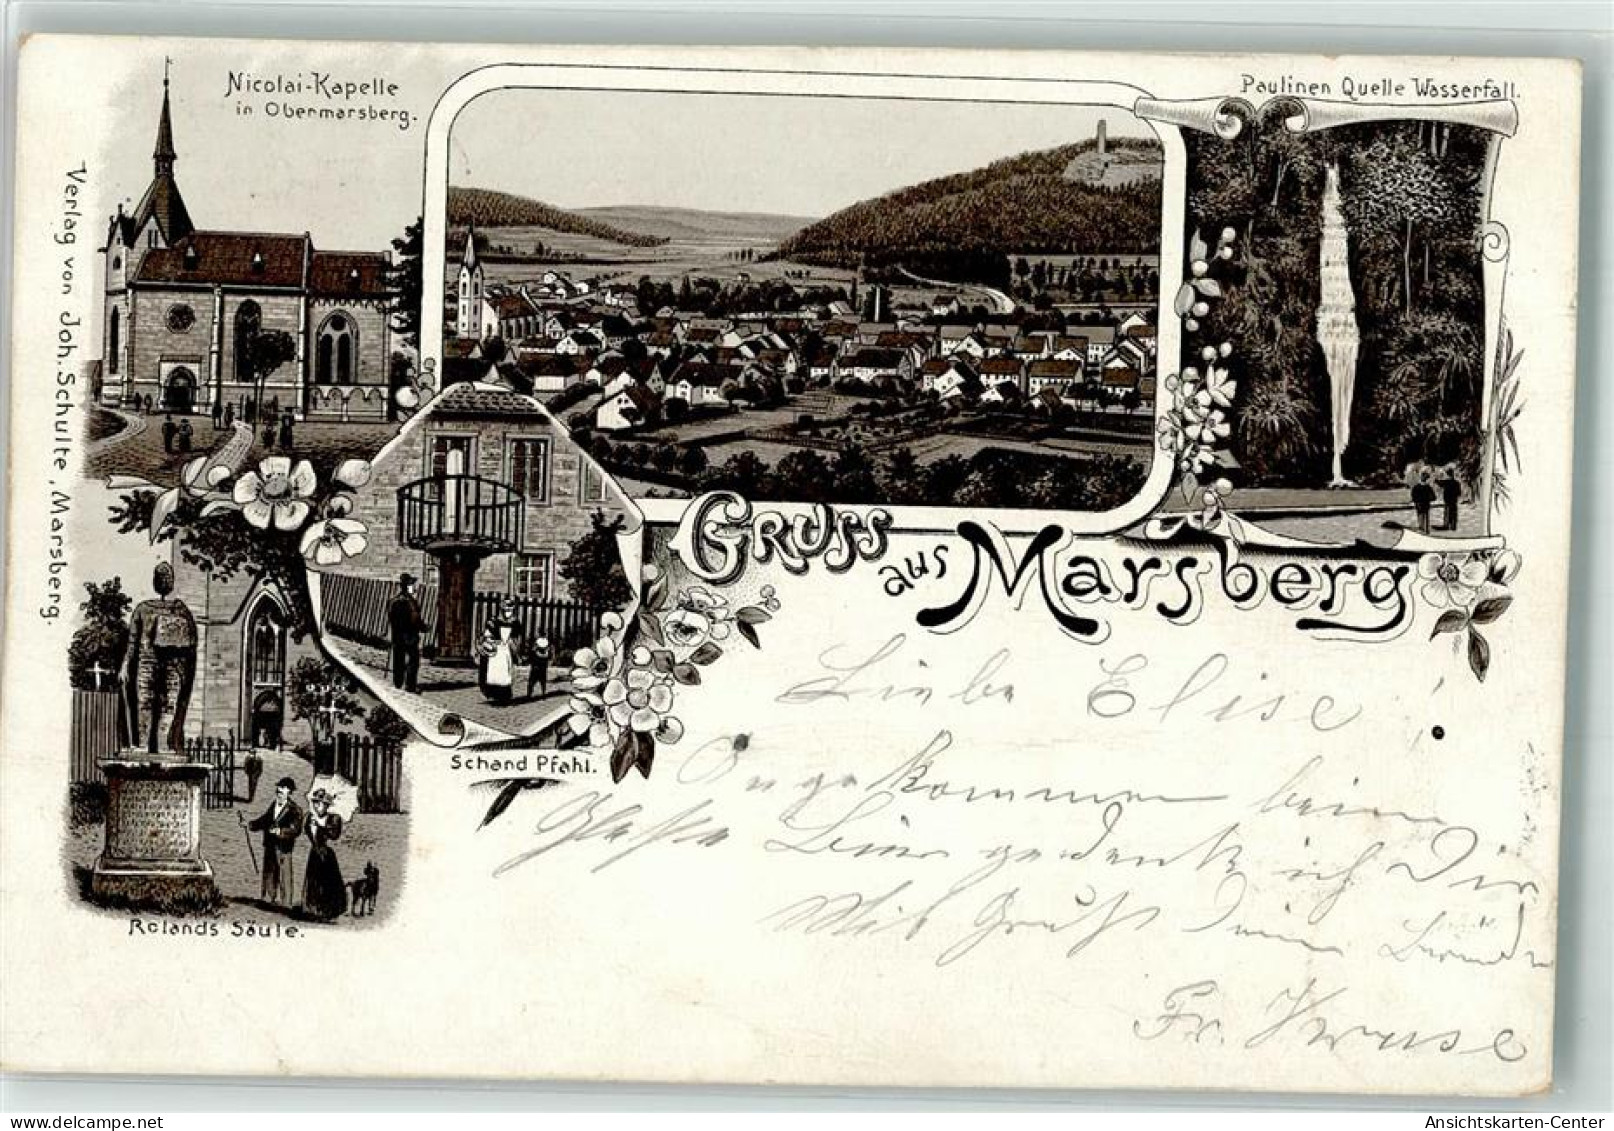 Nicolai-Kapelle
in Obermarsberg.
Paulinen Quelle Wasserfall.
Verlag von Joh. Schulte, Marsberg.
Gruss
aus Marsberg
Schand Pfahl.
Rolands Säule.
Liebe Elise!
Angekommen beim
Glase Bier gedenk ich Dir
Mit Gruß Dein
Fr. Kruse
Ansichtskarten-Center